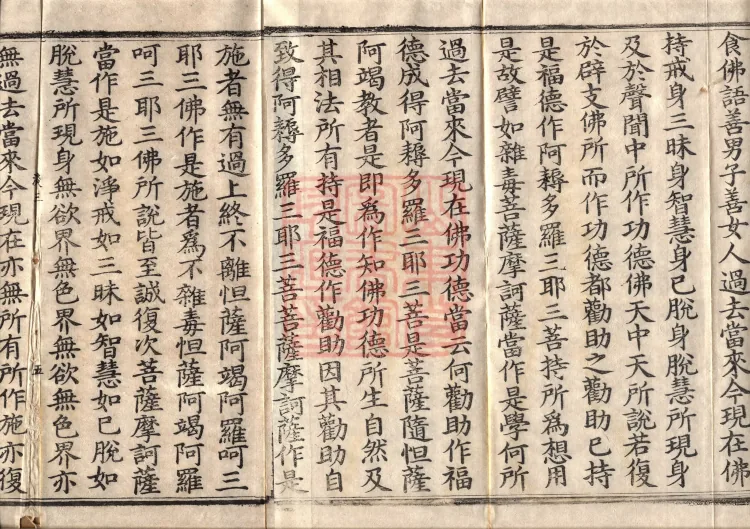 食佛語善男子善女人過去當來今現在佛
持戒身三昧身智慧身已脫身脫慧所現身
及於聲聞中所作功德佛天中天所說若復
於辟支佛所而作功德都勸助之勸助已持
是福德作阿耨多羅三耶三菩持所爲想用
是故譬如雜毒菩薩摩訶薩當作是學何所
過去當來今現在佛功德當云何勸助作福
德成得阿耨多羅三耶三菩是菩薩隨怛薩
阿竭教者是即爲作知佛功德所生自然及
其相法所有持是福德作勸助因其勸助自
致得阿耨多羅三耶三菩菩薩摩訶薩作是
施者無有過上終不離怛薩阿竭阿羅呵三
耶三佛作是施者爲不雜毒怛薩阿竭阿羅
呵三耶三佛所說皆至誠復次菩薩摩訶薩
當作是施如淨戒如三昧如智慧如已脫如
脫慧所現身無欲界無色界無欲無色界亦
無過去當來今現在亦無所有所作施亦復